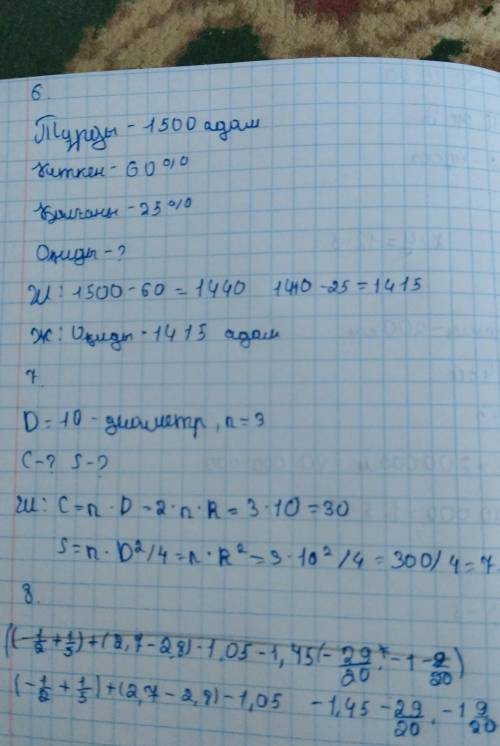 6.
Тұрды - 1500 адам
Киткен - 60%
Қалғаны - 25%
Оқиды - ?
Ш: 1500 - 60 = 1440 1440 - 25 = 1415
Ж: Оқиды - 1415 адам
7
D = 10 - диаметр, n = 3
C - ? S - ?
Ш: C = n · D = 2 · n · R = 3 · 10 = 30
S = n · D²/4 = n · R² = 3 · 10²/4 = 300/4 = 7
8.
((-1/2 + 1/3) + (2,7 - 2,8) - 1,05 - 1,45 (- 29/20 · - 1 - 9/20)
(-1/2 + 1/3) + (2,7 - 2,8) - 1,05 - 1,45 - 29/20 · - 1 9/20